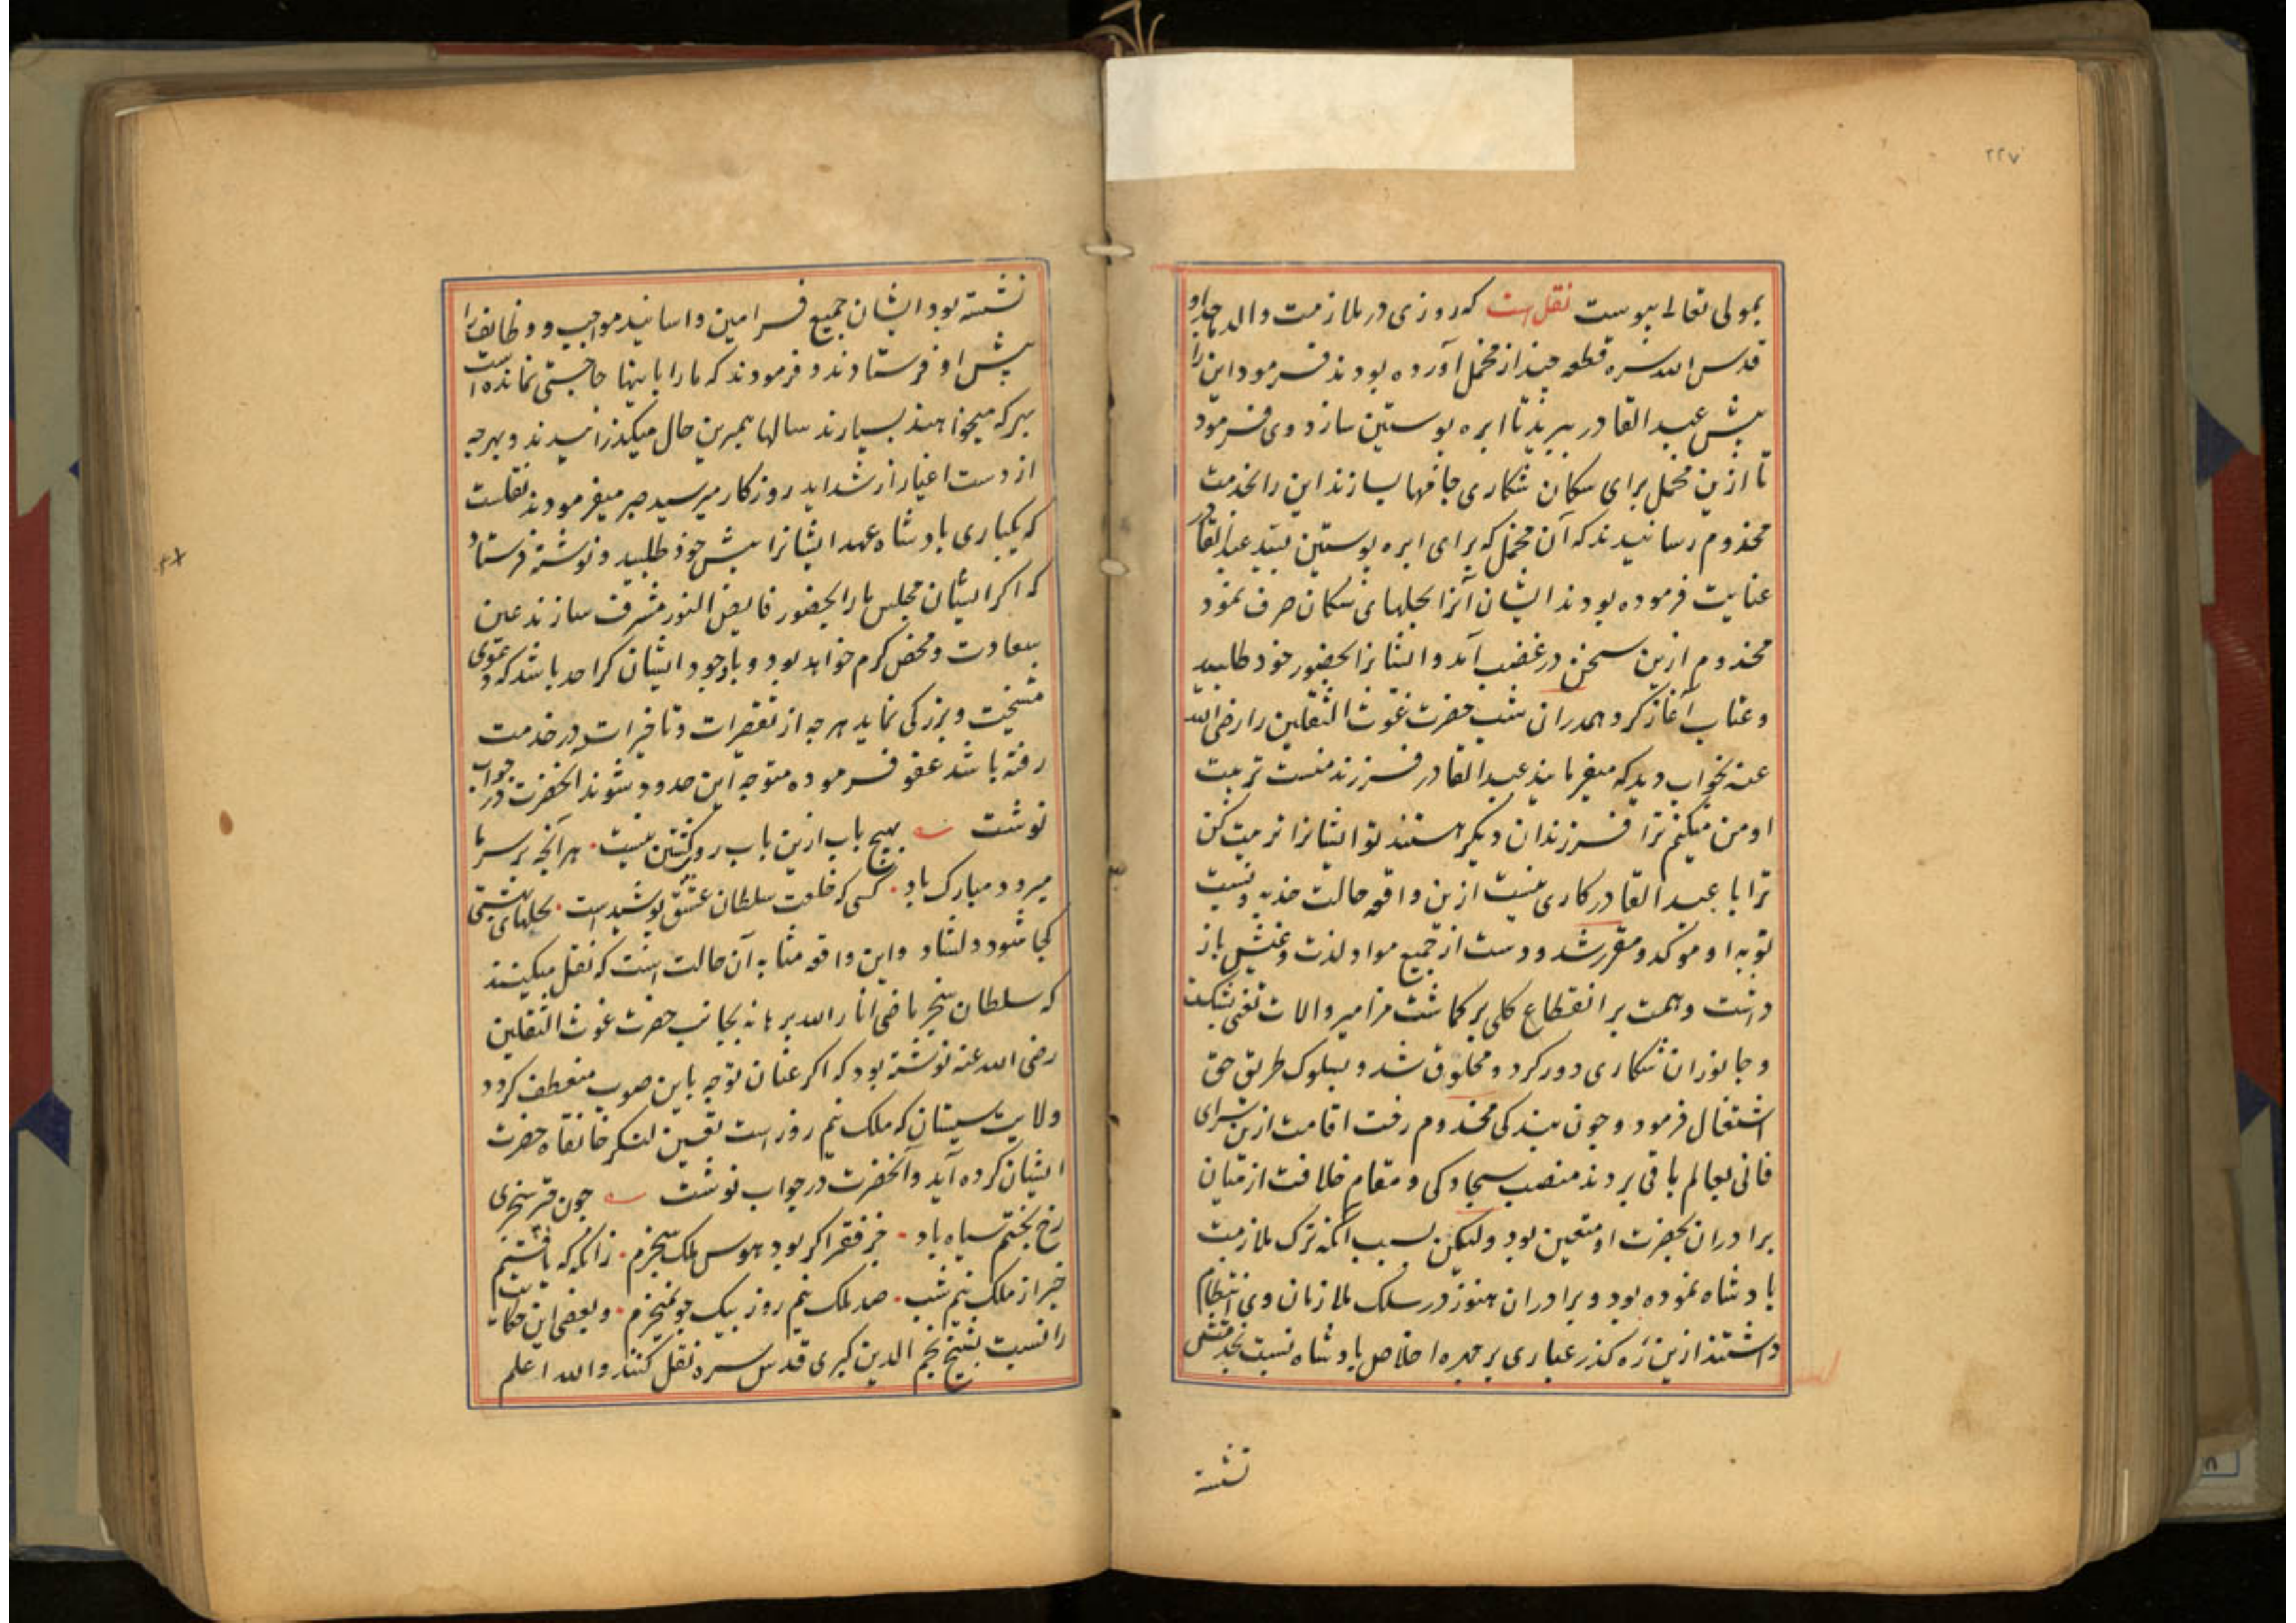 ۲۲۷
بمولی تعالی پیوست نقل است که روزی در ملازمت والد ماجد او
قدس الله سره قطعه چند از مخمل آورده بودند فرمود این را
پیش عبد القادر ببرید تا ابره پوستین سازد وی فرمود
تا ازین مخمل برای سکان شکاری جافها بسازند این را بخدمت
مخدوم رسانیدند که آن مخمل که برای ابره پوستین سید عبد القادر
عنایت فرموده بودند ایشان آنرا بجلهای سکان صرف نمود
مخدوم ازین سخن در غضب آمد و ایشانرا بحضور خود طلبید
و عتاب آغاز کرد و همدران شب حضرت غوث الثقلین را رضی الله
عنه بخواب دید که میفرمایند عبد القادر فرزند منست تربیت
او من میکنم ترا فرزندان دیکر هستند تو ایشانرا تربیت کن
ترا با عبد القادر کاری نیست ازین واقعه حالت جذبه و نسبت
توبه او موکد و مقرر شد و دست از جمیع مواد لذت و عیش باز
داشت و همت بر انقطاع کلی بر کماشت مزامیر و الات تغنی بشکست
و جانوران شکاری دور کرد و محلوق شد و بسلوک طریق حق
اشتغال فرمود و چون بندکی مخدوم رفت اقامت ازین سرای
فانی بعالم باقی بردند منصب سجادکی و مقام خلافت از میان
برادران بحضرت او متعین بود ولیکن بسبب آنکه ترک ملازمت
بادشاه نموده بود و برادران هنوز در سلک ملازمان وی انتظام
داشتند ازین ره کذر غباری بر چهره اخلاص بادشاه نسبت بخدمتش
نشسته
نشسته بود ایشان جمیع فرامین و اسانید مواجب و وظایف را
پیش او فرستادند و فرمودند که ما را باینها حاجتی نمانده است
بهر که میخواهند بسپارند سالها بهمین حال میکذرانیدند و بهرچه
از دست اغیار از شداید روزکار میرسید صبر میفرمودند نقلست
که یکباری بادشاه عهد ایشانرا پیش خود طلبید و نوشته فرستاد
که اکر ایشان مجلس ما را بحضور فایض النور مشرف سازند عین
سعادت و محض کرم خواهد بود و باوجود ایشان کرا حد باشد که دعوی
مشیخت و بزرکی نماید هرچه از تقصیرات و تاخیرات در خدمت
رفته باشد عفو فرموده متوجه این حدود شوند آنحضرت در جواب
نوشت بهیچ باب ازین باب روی کشتن نیست هر آنچه بر سر ما
میرود مبارک باد کسی که خلعت سلطان عشق پوشیدست بحلهای بهشتی
کجا شود دلشاد و این واقعه مشابه آن حالت است که نقل میکنند
که سلطان سنجر ماضی انار الله برهانه بجانب حضرت غوث الثقلین
رضی الله عنه نوشته بود که اکر عنان توجه باین صوب منعطف کردد
ولایت سیستان که ملک نیم روز است تعیین لنکر خانقاه حضرت
ایشان کرده آید و آنحضرت در جواب نوشت چون چتر سنجری
رخ بختم سیاه باد جز فقر اکر بود هوس ملک سنجرم زانکه که یافتم
خبر از ملک نیم شب صد ملک نیم روز بیک جو نمیخرم و بعضی این حکایت
را نسبت بشیخ نجم الدین کبری قدس سره نقل کنند و الله اعلم